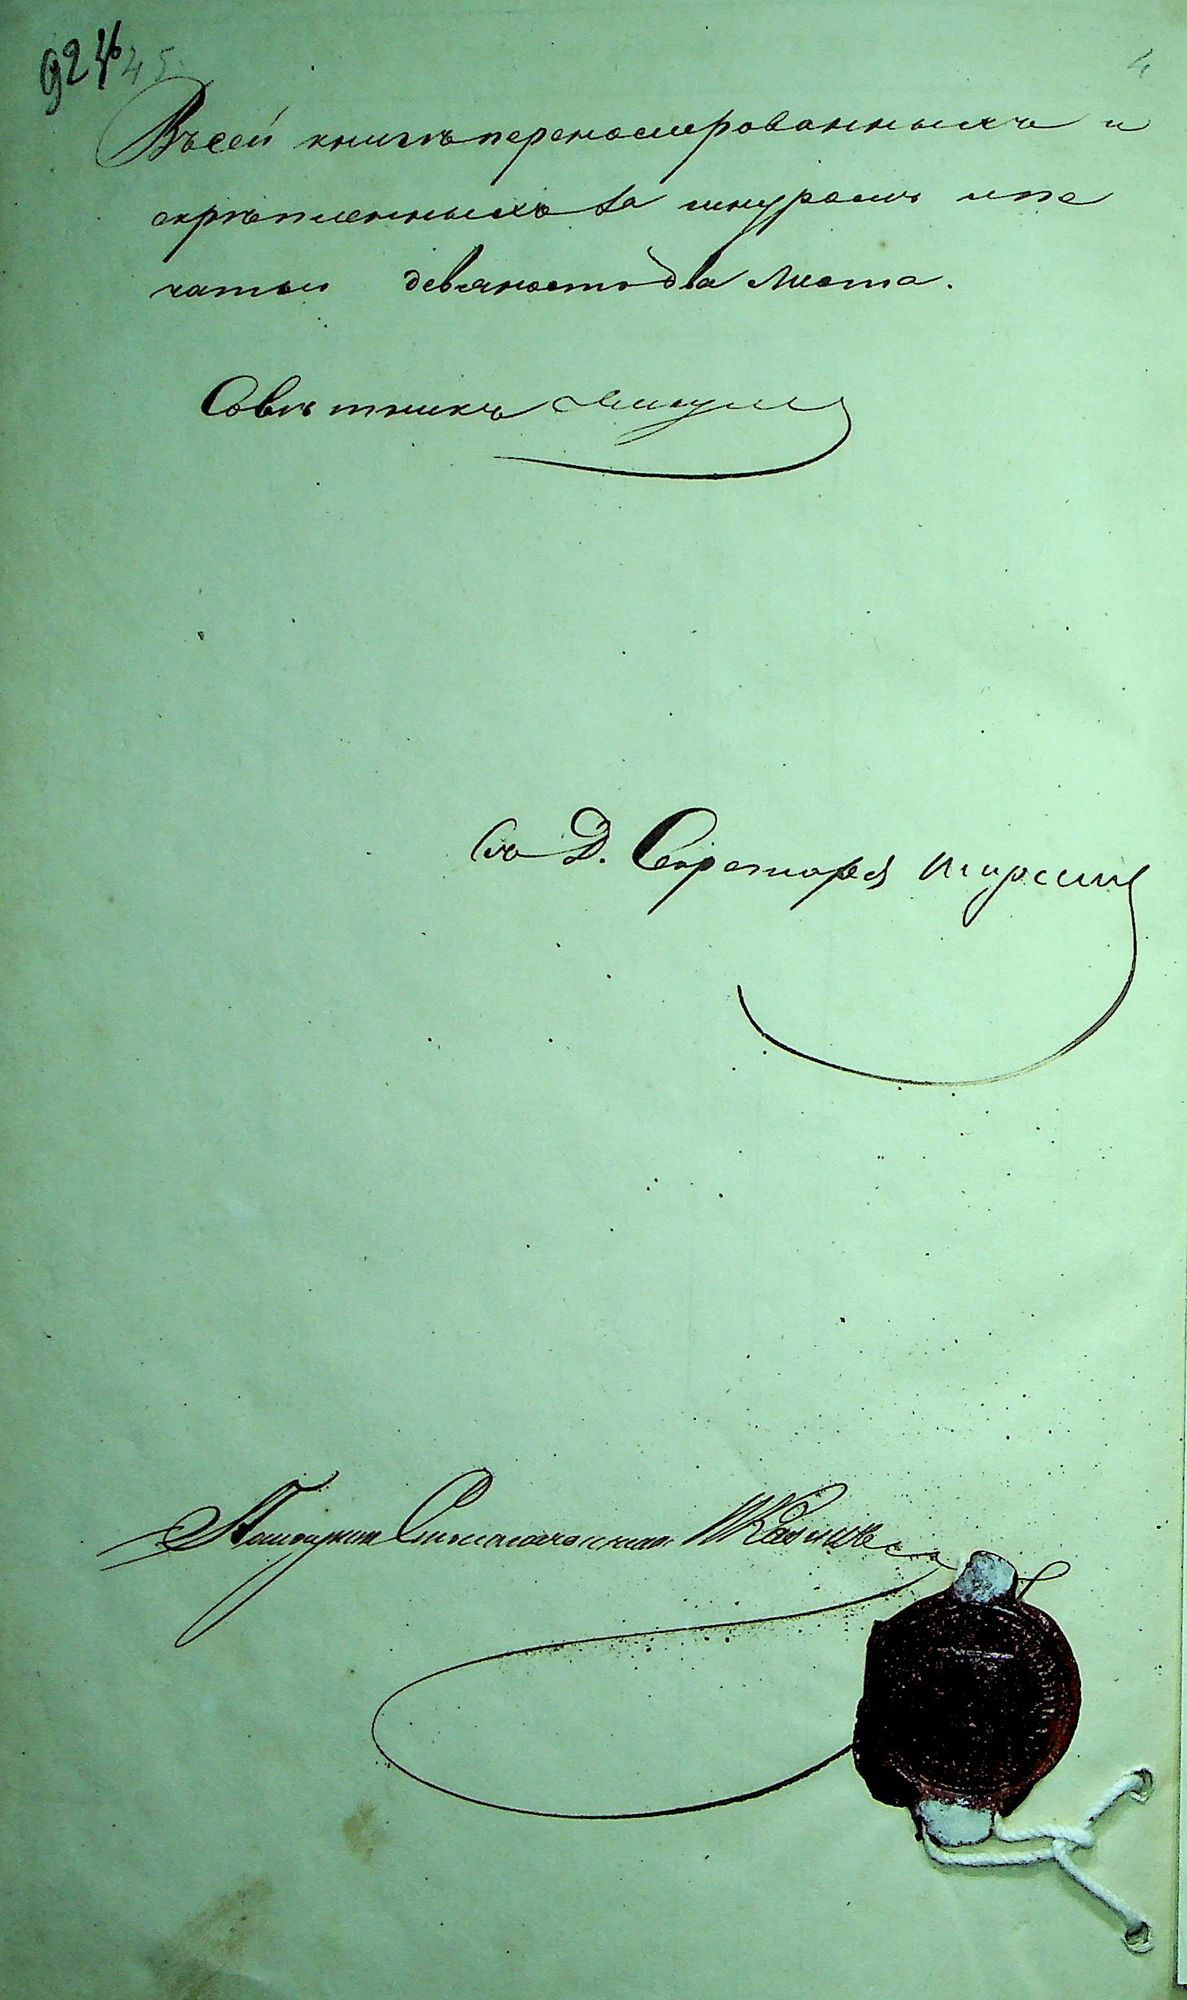 924 45
4
Въ сей книгѣ переномерованныхъ и
скрѣпленныхъ за шнуромъ и пе
чатью девяносто два листа.
Совѣтникъ
За Д. Секретаря
Помощникъ Столоначальника